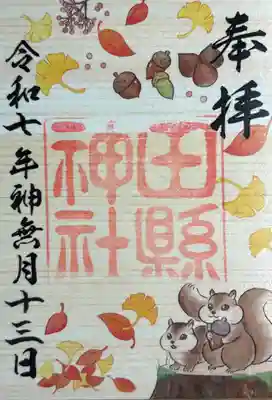 奉拝
田縣
神社
令和七年神無月十三日